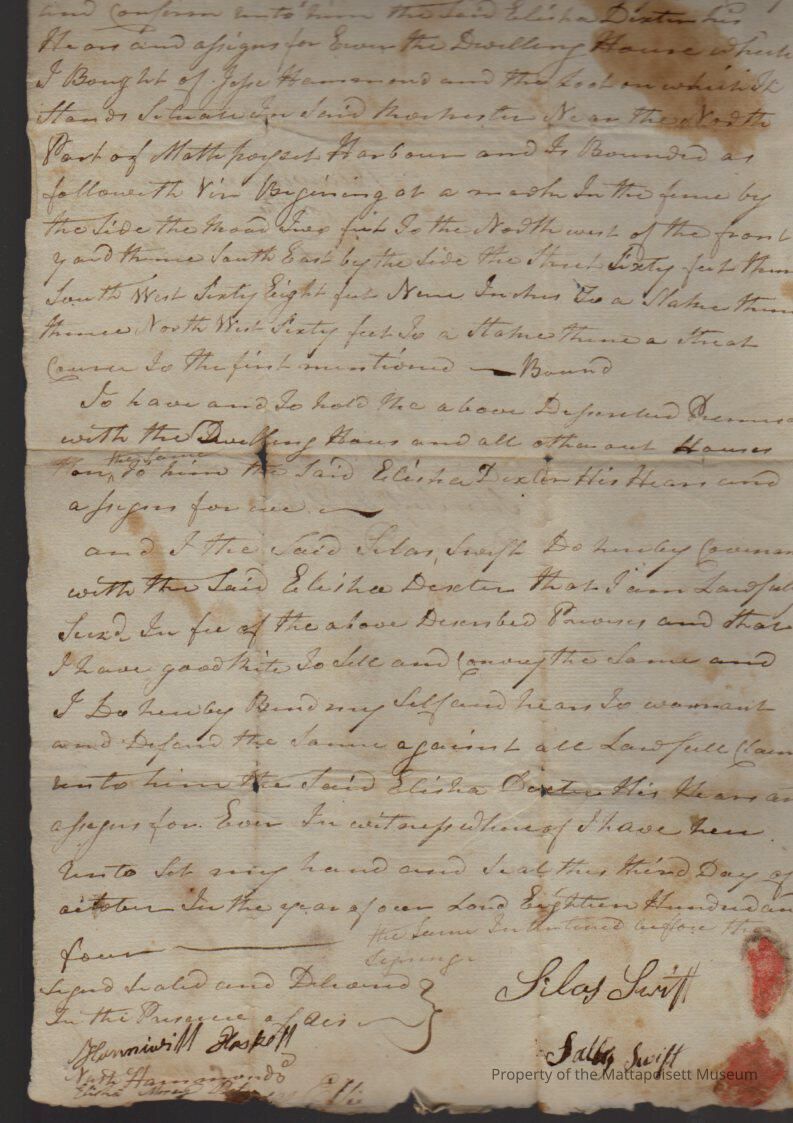 and Confirm unto him the Said Elisha Dexter his
Hears and assigns for Ever the Dwelling House which
I Bought of Jese Hammond and the Loot on which It
Stands Setuate In Said Rochester Near the North
Part of Mathpoyset Harbour and Is Bounded as
followeth Viz Begining at a mark In the fence by
the Side the Road Two feet To the North west of the front
yard thence South East by the Side the Street Sixty feet then
South West Sixty Eight feet Nine Inches To a Stake then
thence North West Sixty feet To a Stake thence a Streat
Course To the first mentioned Bound
To have and To hold the above Described Premises
with the Dwelling Hous and all other out Houses
on the Same To him the Said Elisha Dexter His Hears and
assigns for ever
and I the Said Silas Swift Do hereby Covenan
with the Said Elisha Dexter that I am Lawful
Seized In fee of the above Described Premises and that
I have good Rite To Sell and Convey the Same and
I Do hereby Bind my Self and hears To warrant
and Defend the Same against all Lawfull Claim
unto him the Said Elisha Dexter His Hears an
assigns for Ever In witness whereof I have here
Unto Set my hand and Seal this third Day of
october In the year of our Lord Eighteen Hundred an
four
the Same Interlined before the
Signing
Signd Sealed and Delivered
In the Presence of us
Silas Swift
Hunniwill Haskell
Sally Swift
Hammond
Elisha
Property of the Mattapoisett Museum